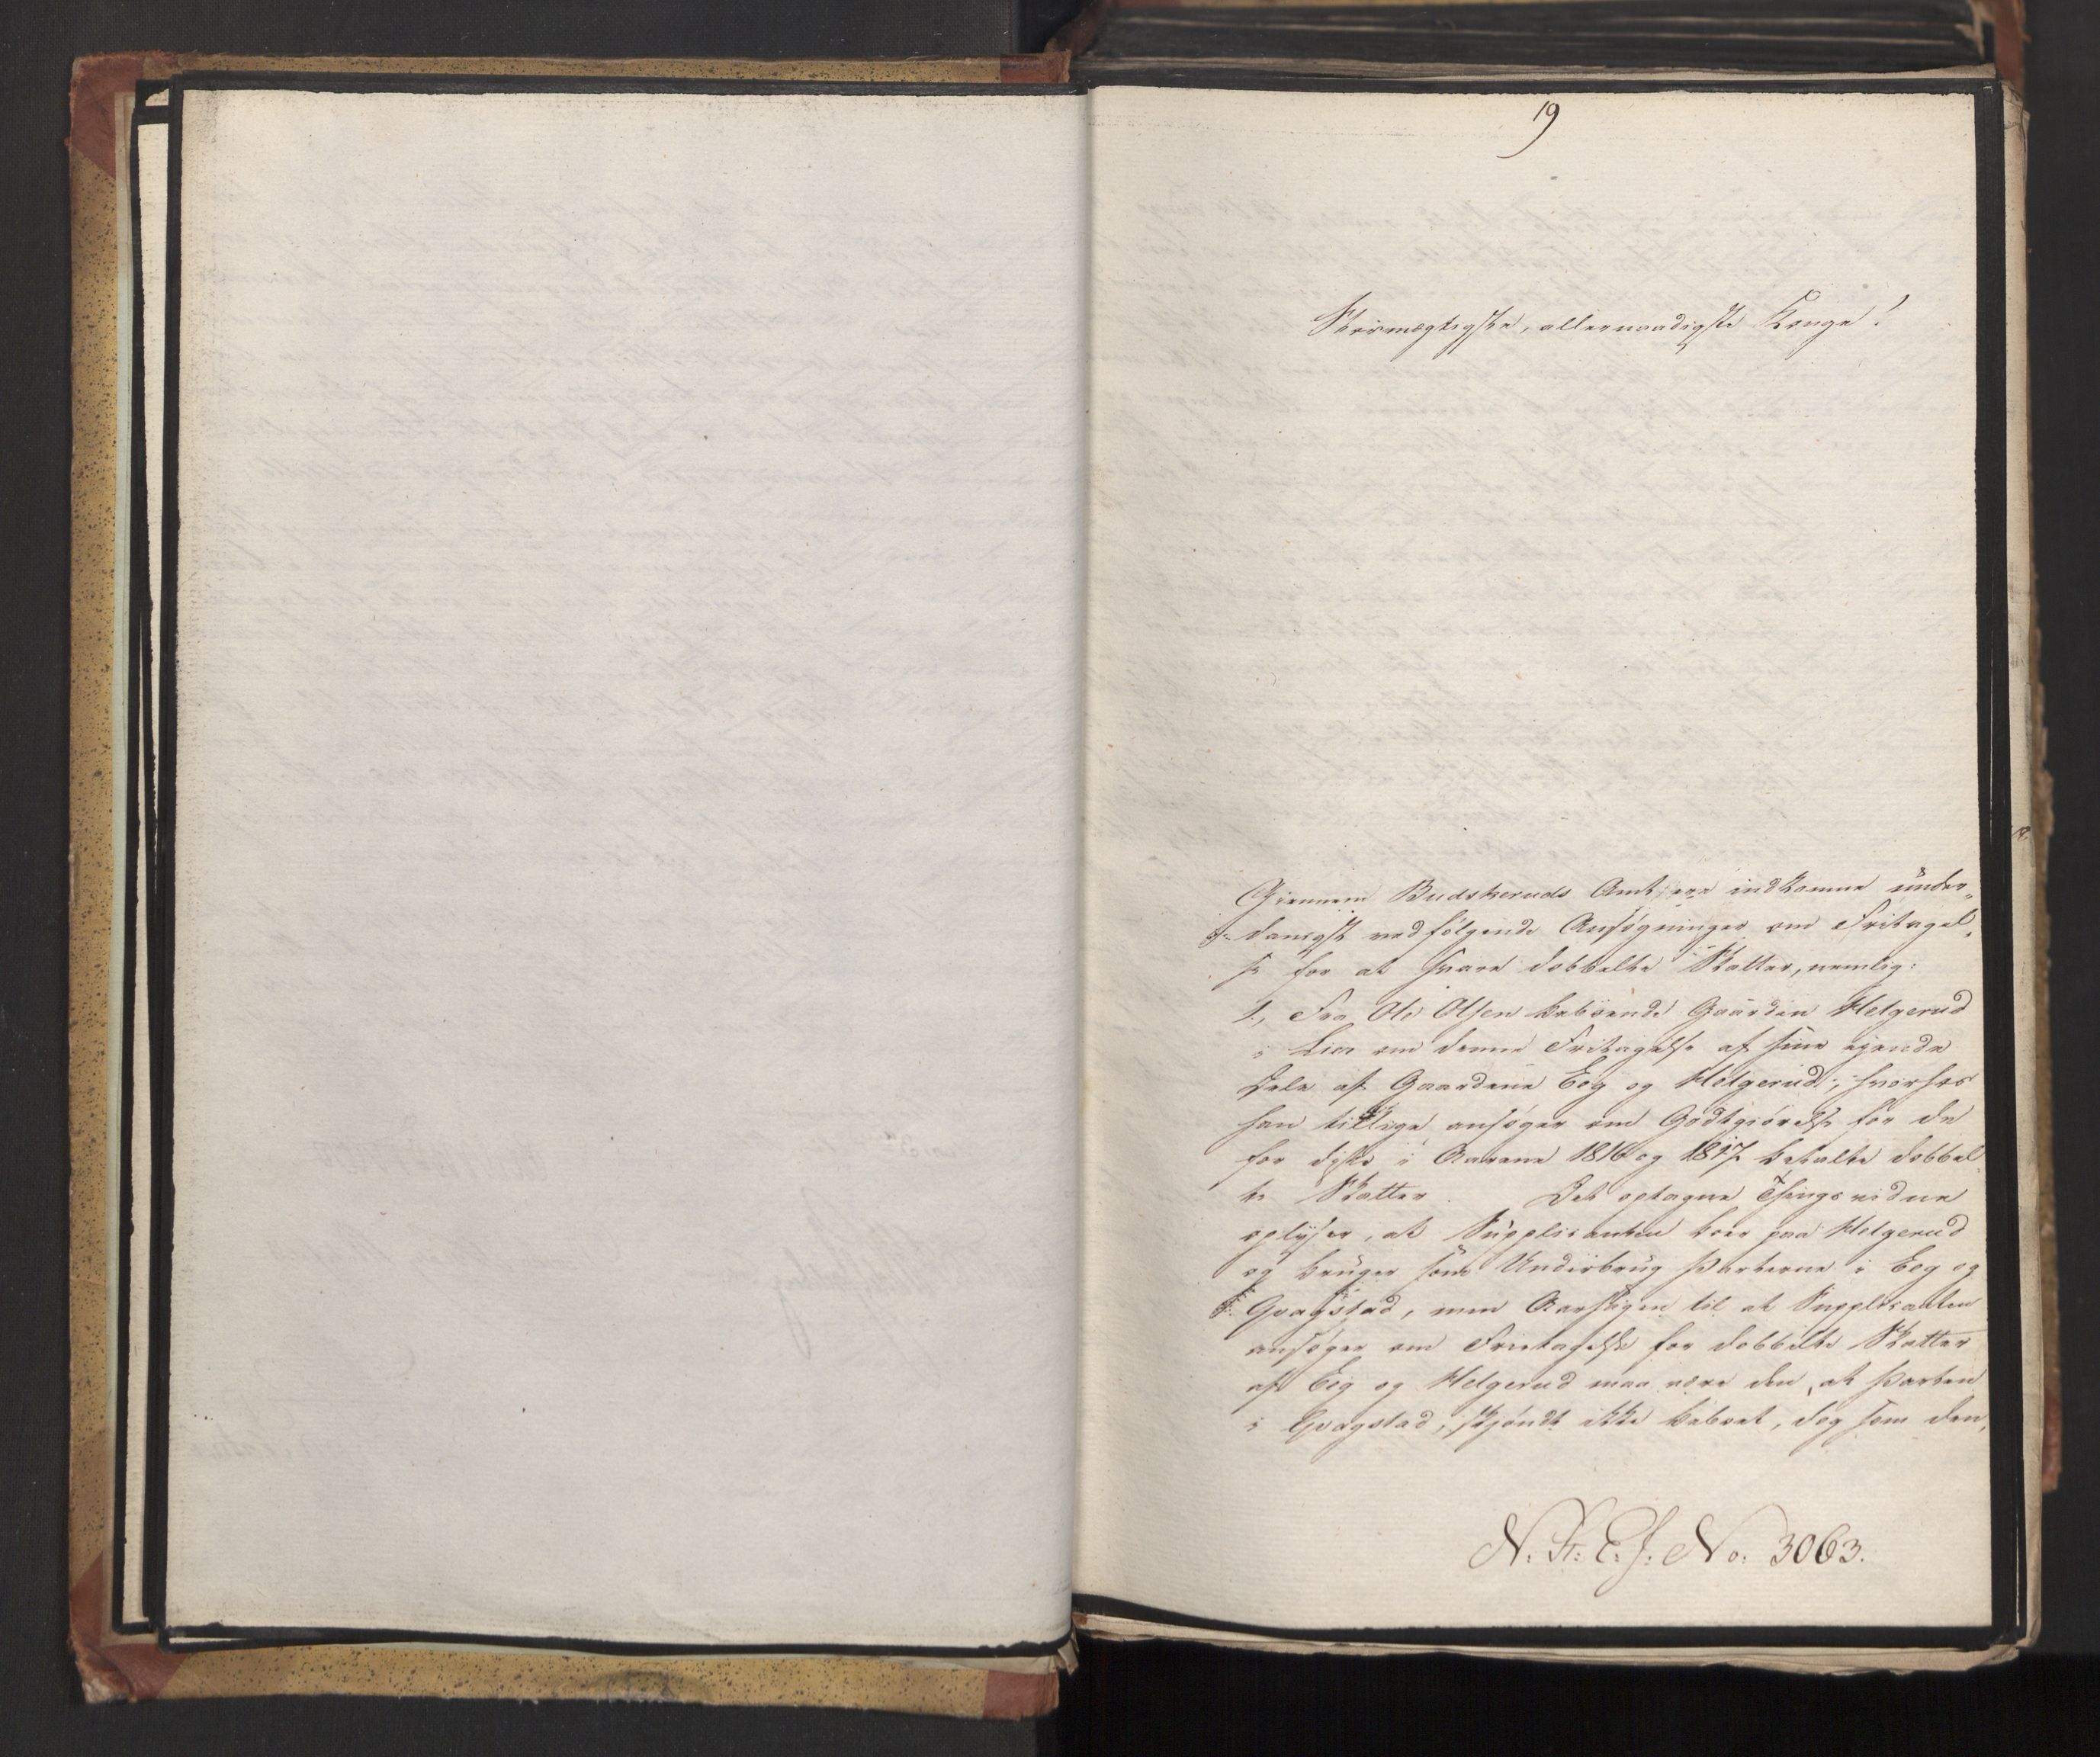 19
Stormægtigste, allernaadigste Konge!
Giennem Budskeruds Amt ere indkomne under-
danigst vedfølgende Ansøgninger om Fritagel-
se for at svare dobbelte Skatter, nemlig:
1, Fra Ole Olsen beboende Gaarden Helgerud
i Lier om denne Fritagelse af sine ejende
Dele af Gaardene Eeg og Helgerud, hvorhos
han tillige ansøger om Godtgiørelse for de
for disse i Aarene 1816 og 1817 betalte dobbel
te Skatter. Det optagne Thingsvidne
oplyser, at Supplicanten boer paa Helgerud
og bruger som Underbrug Parterne i Eeg og
Gvagstad, men Aarsagen til at Supplicanten
ansøger om Frietagelse for dobbelte Skatter
af Eeg og Helgerud maa være den, at Parten
i Gvagstad, skjøndt ikke beboet, dog som den,
N. Fr: C. J: No: 3063.